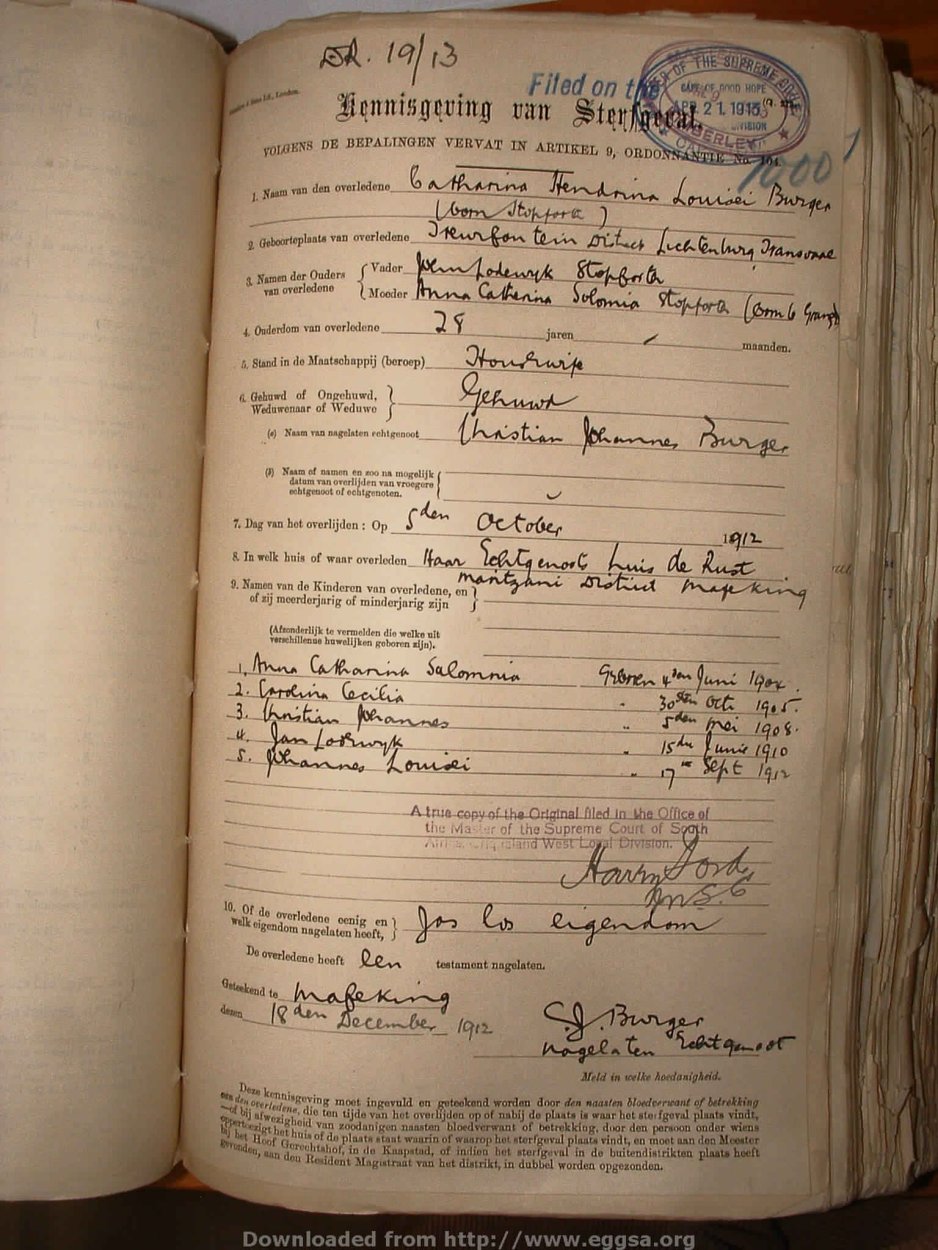 19/13
Filed on the
OF THE SUPREME
CAPE OF GOOD HOPE
APR 21 1913
DIVISION
Kennisgeving van Sterfgeval.
VOLGENS DE BEPALINGEN VERVAT IN ARTIKEL 9, ORDONNANTIE No. 104.
1. Naam van den overledene Catharina Hendrina Louisei Burger
(born Stopforth)
2. Geboorteplaats van overledene Treurfontein District Lichtenburg Transvaal
3. Namen der Ouders van overledene { Vader Lodewyk Stopforth
Moeder Anna Catherina Solomia Stopforth (born
4. Ouderdom van overledene 28 jaren / maanden.
5. Stand in de Maatschappij (beroep) Housewife
6. Gehuwd of Ongehuwd, Weduwenaar of Weduwe } Gehuwd
(a) Naam van nagelaten echtgenoot Christian Johannes Burger
(b) Naam of namen en zoo na mogelijk
datum van overlijden van vroegere
echtgenoot of echtgenoten.
7. Dag van het overlijden : Op 5den October 1912
8. In welk huis of waar overleden Haar Echtgenoots huis de Rust
Maritzani District Mafeking
9. Namen van de Kinderen van overledene, en
of zij meerderjarig of minderjarig zijn
(Afzonderlijk te vermelden die welke uit
verschillende huwelijken geboren zijn).
1. Anna Catharina Salomnia Geboren 4den Juni 1904.
2. Carolina Cecilia " 30sten Oct 1905.
3. Christian Johannes " 5den Mei 1908.
4. Jan Lodewyk " 15de Junie 1910
5. Johannes Louisei " 17 Sept 1912
A true copy of the Original filed in the Office of
the Master of the Supreme Court of South
Africa Griqualand West Local Division.
10. Of de overledene eenig en
welk eigendom nagelaten heeft, } Jas los eigendom
De overledene heeft een testament nagelaten.
Geteekend te Mafeking
dezen 18den December 1912
C.J. Burger
nagelaten Echtgenoot
Meld in welke hoedanigheid.
Deze kennisgeving moet ingevuld en geteekend worden door den naasten bloedverwant of betrekking
van den overledene, die ten tijde van het overlijden op of nabij de plaats is waar het sterfgeval plaats vindt,
—of bij afwezigheid van zoodanigen naasten bloedverwant of betrekking, door den persoon onder wiens
oppertoezigt het huis of de plaats staat waarin of waarop het sterfgeval plaats vindt, en moet aan den Meester
bij het Hoof Gerechtshof, in de Kaapstad, of indien het sterfgeval in de buitendistrikten plaats heeft
gevonden, aan den Resident Magistraat van het distrikt, in dubbel worden opgezonden.
Downloaded from http://www.eggsa.org